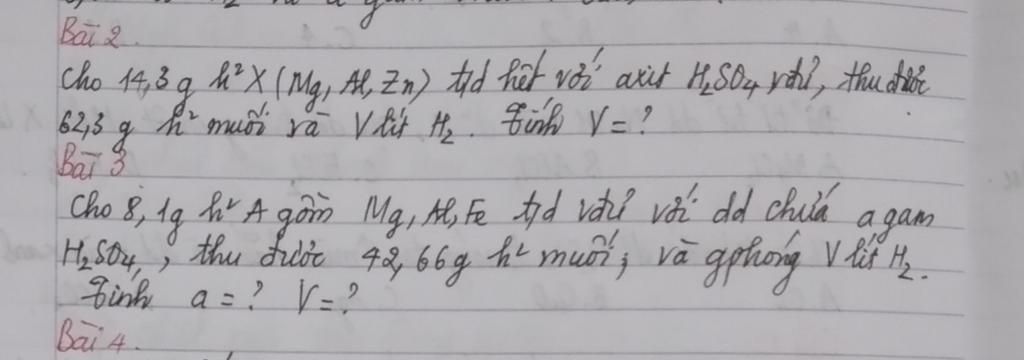 Bài 2.
Cho 14,3 g h² X (Mg, Al, Zn) t/d hết với axit H₂SO₄ vđủ, thu được
62,3 g h² muối và V lít H₂. Tính V = ?
Bài 3
Cho 8,1g h² A gồm Mg, Al, Fe t/d vđủ với dd chứa a gam
H₂SO₄, thu được 42,66g h² muối, và gphóng V lít H₂.
Tính a = ? V = ?
Bài 4.